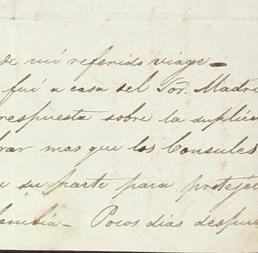 de mi referido viage—
fui a casa del Sor. Madri
respuesta sobre la suplica
rar mas que los Consules
su parte para protejer
lembia— Pocos dias despue